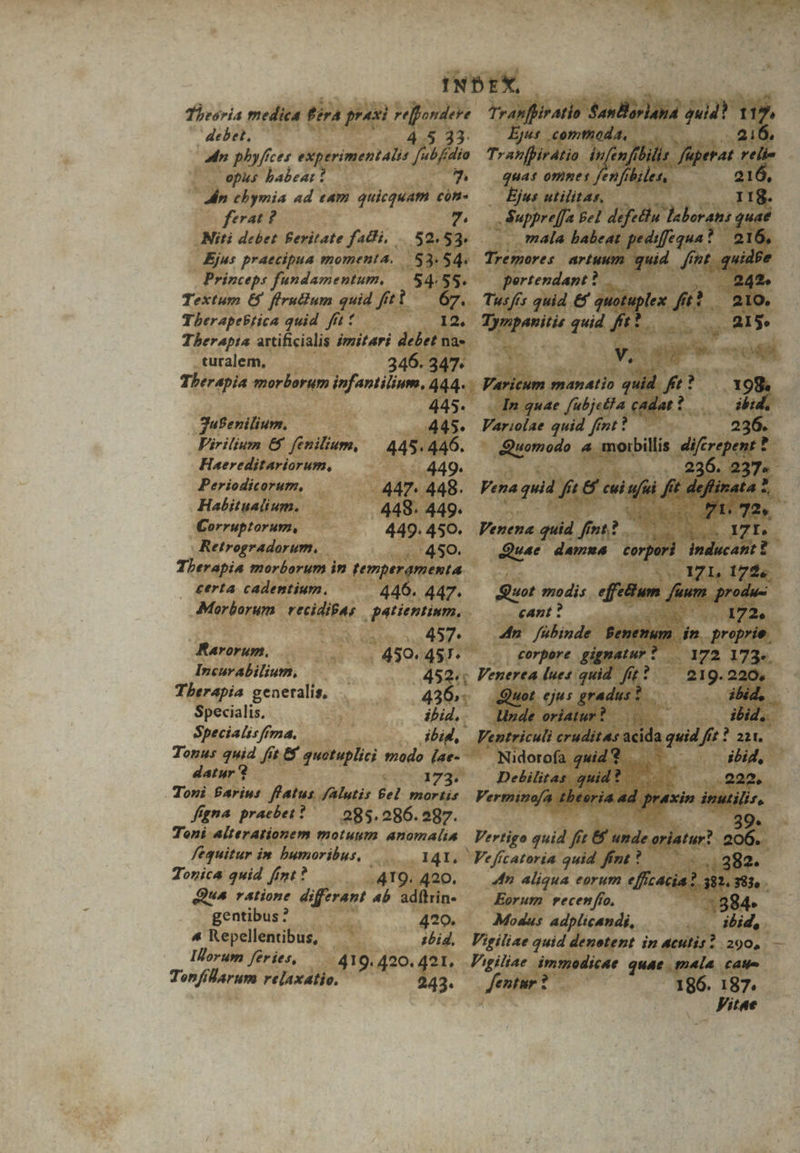 INDEX.
Theoria medica verà praxi reſpondere
debet. 4 5 33.
An phyſices experimentalis ſubſidio
opus habeat? 7.
An chymia ad eam quicquam con-
ferat? 7.
Niti debet veritate facti. 52. 53.
Ejus praecipua momenta. 53. 54.
Princeps fundamentum. 54. 55.
Textum & ſtructum quid ſit? 67.
Therapevtica quid ſit? 12.
Therapia artificialis imitari debet na-
turalem. 346. 347.
Therapia morborum infantilium. 444.
445.
Juvenilium. 445.
Virilium & ſenilium. 445. 446.
Haereditariorum. 449.
Periodicorum. 447. 448.
Habitualium. 448. 449.
Corruptorum. 449. 450.
Retrogradorum. 450.
Therapia morborum in temperamenta
certa cadentium. 446. 447.
Morborum recidivas patientium.
457.
Rarorum. 450. 451.
Incurabilium. 452.
Therapia generalis. 436.
Specialis. ibid.
Specialisſima. ibid.
Tonus quid ſit & quotuplici modo lae-
datur? 173.
Toni varius ſtatus ſalutis vel mortis
ſigna praebet? 285. 286. 287.
Toni alterationem motuum anomalia
ſequitur in humoribus. 141.
Tonica quid ſint? 419. 420.
Qua ratione differant ab adſtrin-
gentibus? 420.
a Repellentibus. ibid.
Illorum ſeries. 419. 420. 421.
Tonſillarum relaxatio. 243.
Tranſpiratio Sanctoriana quid? 117.
Ejus commoda. 216.
Tranſpiratio inſenſibilis ſuperat reli-
quas omnes ſenſibiles. 216.
Ejus utilitas. 118.
Suppreſſa vel defectu laborans quae
mala habeat pedisſequa? 216.
Tremores artuum quid ſint quidve
portendant? 242.
Tusſis quid & quotuplex ſit? 210.
Tympanitis quid ſit? 215.
V.
Varicum manatio quid ſit? 198.
In quae ſubjecta cadat? ibid.
Variolae quid ſint? 236.
Quomodo a morbillis diſcrepent?
236. 237.
Vena quid ſit & cui uſui ſit deſtinata?
71. 72.
Venena quid ſint? 171.
Quae damna corpori inducant?
171. 172.
Quot modis effectum ſuum produ-
cant? 172.
An ſubinde venenum in proprio
corpore gignatur? 172 173.
Venerea lues quid ſit? 219. 220.
Quot ejus gradus? ibid.
Unde oriatur? ibid.
Ventriculi cruditas acida quid ſit? 221.
Nidoroſa quid? ibid.
Debilitas quid? 222.
Verminoſa theoria ad praxin inutilis.
39.
Vertigo quid ſit & unde oriatur? 206.
Veſicatoria quid ſint? 382.
An aliqua eorum efficacia? 382. 383.
Eorum recenſio. 384.
Modus adplicandi. ibid.
Vigiliae quid denotent in acutis? 290.
Vigiliae immodicae quae mala cau-
ſentur? 186. 187.
Vitae